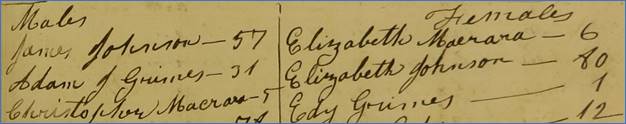 Males
James Johnson — 57
Adam J Grimes — 31
Christopher Macrara — 5
Females
Elizabeth Macrara — 6
Elizabeth Johnson — 80
Edy Grimes — 1
12